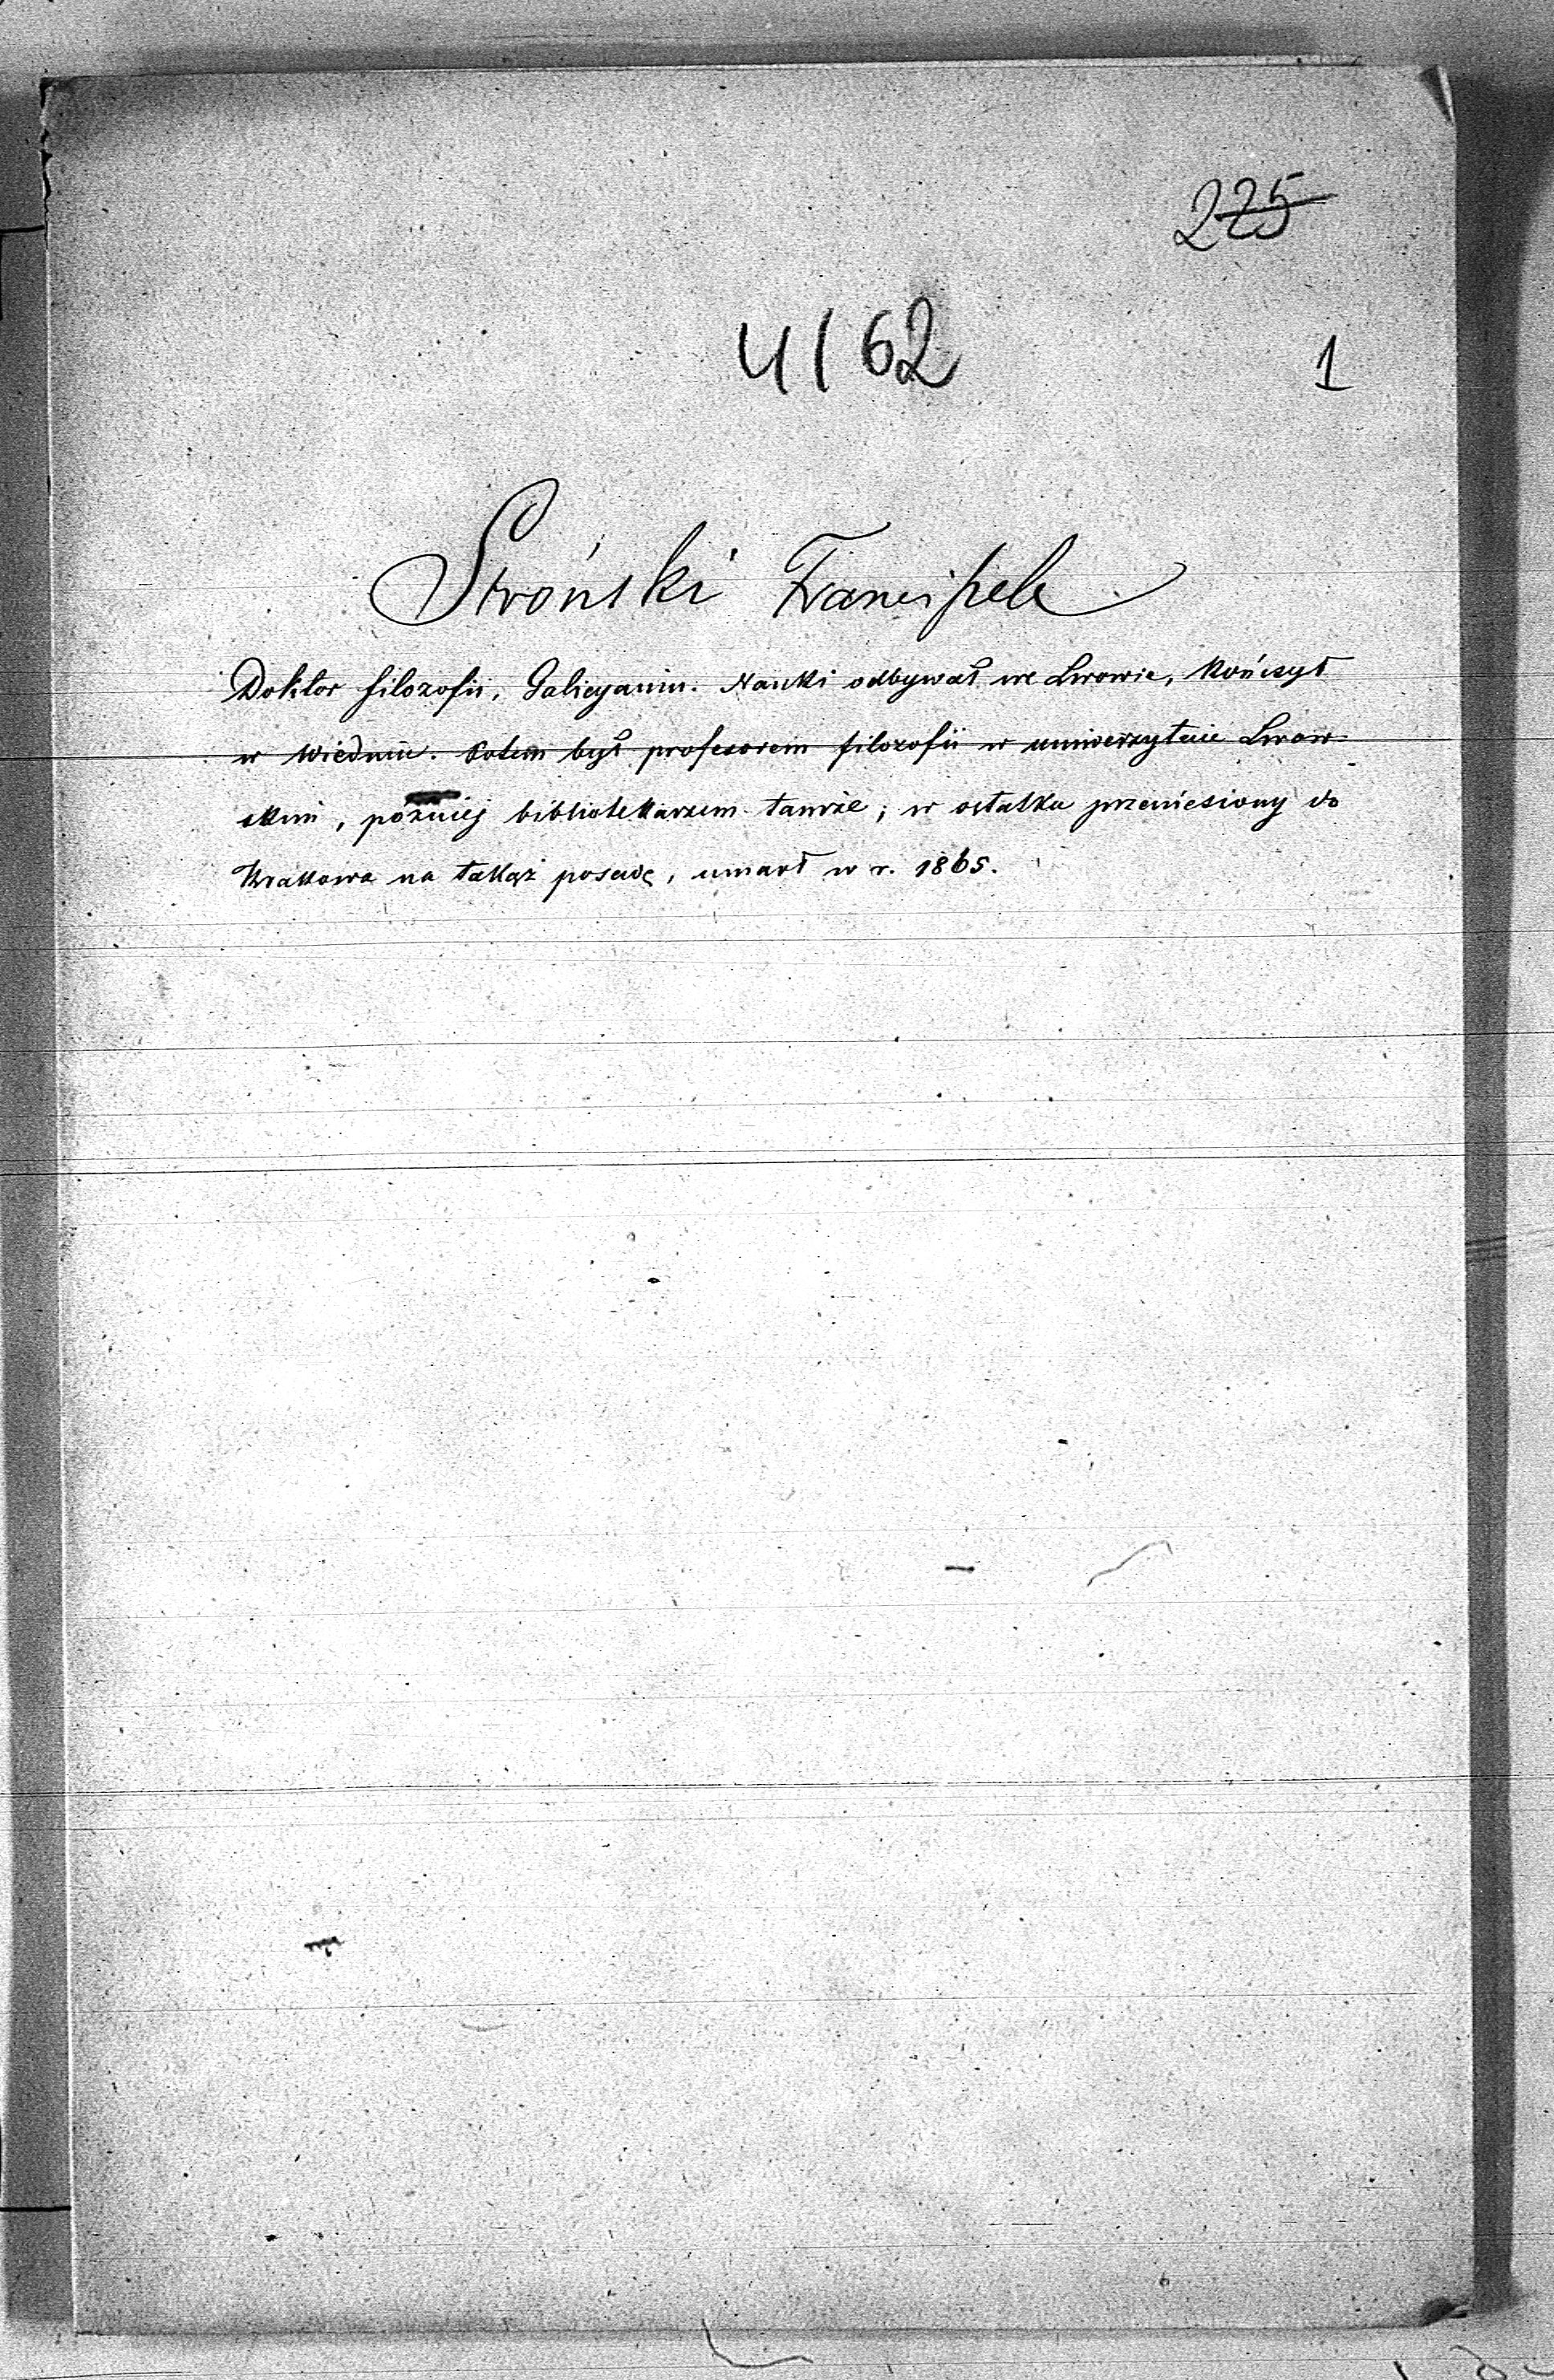 225
4162
1
Stroński Franciszek
Doktor filozofii, Galicyanin. Nauki odbywał we Lwowie, kończył
w Wiedniu. Potem był profesorem filozofii w uniwersytecie Lwow-
skim, później bibliotekarzem tamże; w ostatku przeniesiony do
Krakowa na takąż posadę, umarł w r. 1865.